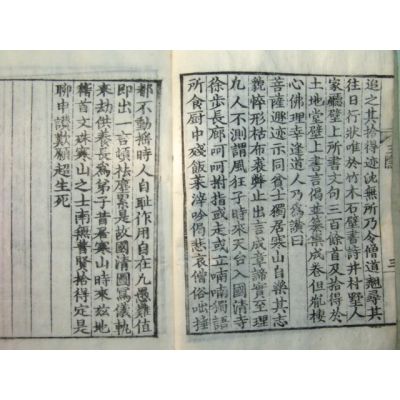 追之其拾得迹沈無所乃令僧道翹尋其
往日行狀唯於竹木石壁書詩并村墅人
家廳壁上所書文句三百餘首及拾得於
土地堂壁上書言偈並纂集成卷但胤棲
心佛理幸逢道人乃爲讃曰
菩薩遯迹示同貧士獨居寒山自樂其志
貌悴形枯布裘弊止出言成章諦實至理
凡人不測謂風狂子時來天台入國清寺
徐步長廊呵呵撫指或走或立喃喃獨語
所食厨中殘飯菜滓吟偈悲哀僧俗咄捶
三
都不動搖時人自耻作用自在凡愚難值
即出一言頓祛塵累是故國清圖寫儀軌
永劫供養長爲弟子昔居寒山時來兹地
稽首文殊寒山之士南無普賢拾得定是
聊申讃歎願超生死